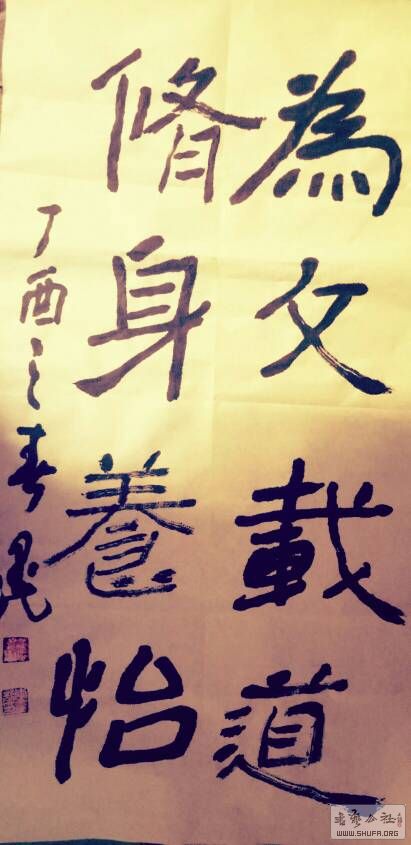 為文載道
脩身養怡
丁酉之春
書藝公社
WWW.SHUFA.ORG